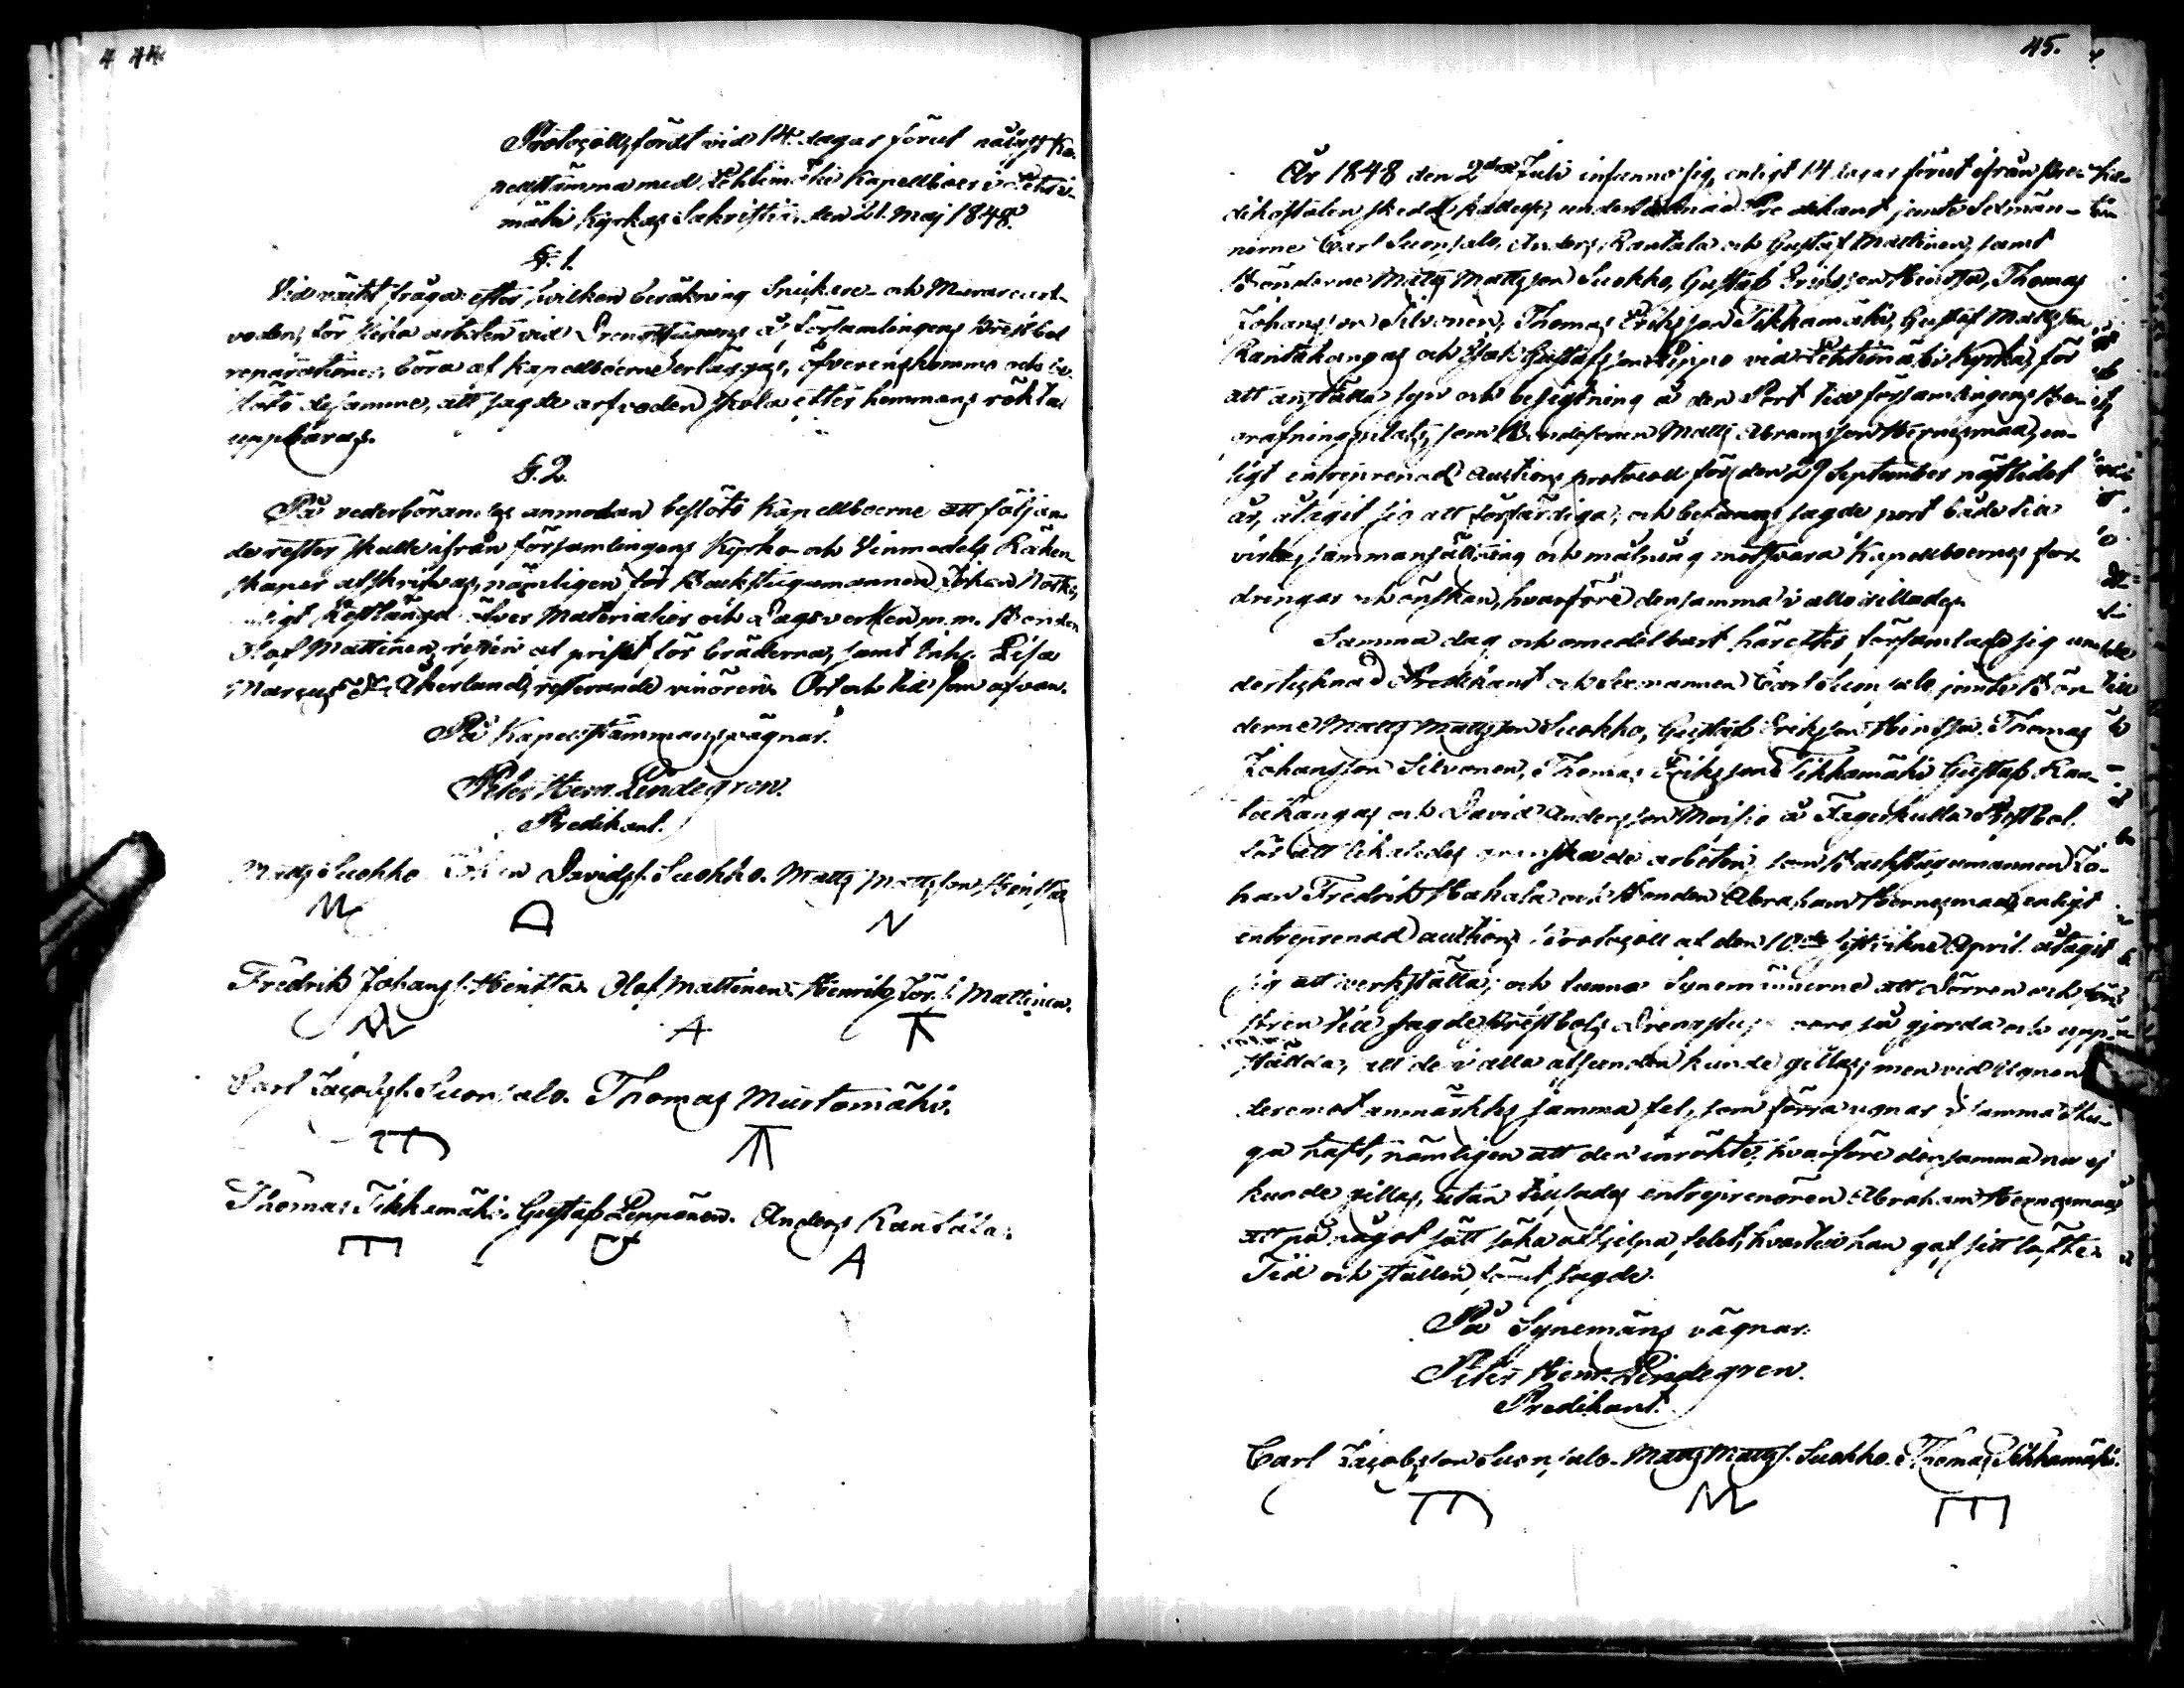 44.
Protocoll, fördt vid 14 dagar förut pålyst Ka-
pellstämma med Lehtimäki Kapellboer i Lehti-
mäki Kyrkas Sakristia, den 21. Maj 1848.
§. 1.
Vid väckt fråga: efter hvilken beräkning Snickare- och Murarearf-
voden, för sina arbeten vid Drengstugans å församlingens Prestbol
reparationer, böra af Kapellboerne erläggas, öfverenskommo och be-
slöto desamme, att sagde arfvoden skola efter hemmans röktal
uppbäras.
§. 2.
På vederbörandes anmodan beslöto Kapellboerne att följan-
de rester skulle ifrån församlingens Kyrko- och Vinmedels Räken-
skaper afskrifvas, nämligen för Backstugumannen Johan
Restlängd öfver Materialier och Dagsverken m.m. Bonden
Olof Mattinen, resten af priset för bräderna, samt Inh. Lisa
Marcusd:r Åkerlund, resterande vinören. Ort och tid som ofvan.
På Kapellstämmans vägnar:
Peter Henr. Lindegren.
Predikant.
Matts Suokko. Johan Davidss. Suokko. Matts Mattsson Hintsa
M D N
Fredrik Johanss. Hintsa. Olof Mattinen. Henrik Mattinen.
A
Carl Jacobss. Suonsalo. Thomas Mustamäki.
Thomas Tikkamäki. Gustaf Lepponen. Anders Rantala.
A
45.
År 1848 den 2dra Juli infunno sig, enligt 14 dagar förut ifrån Pre-
dikostolen skedd kallelse, undertecknad Predikant jemte Sexmän-
nerne Carl Suonsalo, Anders Rantala och Gustaf Mattinen, samt
Bönderne Matts Mattsson Suokko, Gustaf Eriksson Hintsa, Thomas
Johansson Silvonen, Thomas Eriksson Tikkamäki, Gustaf Mattsson
Rantakangas och Isak Gustafsson Leppo vid Lehtimäki Kyrka, för
att anställa syn och besigtning å den Port till församlingens Be-
grafningsplats, som Bondesonen Matts Abramsson Hernesmaa, en-
ligt entreprenad auctions protocoll för den 29 September nästlidet
år, åtagit sig att förfärdiga; och befanns sagde port både till
virke, sammansättning och målning motsvara Kapellboernes for-
dringar och önskan, hvarföre densamma i allo gillades.
Samma dag och omedelbart härefter församlade sig un-
dertecknad Predikant och Sexmannen Carl Suonsalo jemte Bön-
derne Matts Mattsson Suokko, Gustaf Eriksson Hintsa, Thomas
Johansson Silvonen, Thomas Eriksson Tikkamäki, Gustaf Ran-
takangas och David Andersson Moisio å Fagerkulla Prestbol.
för att likaledes granska de arbeten, som Backstugumannen Jo-
han Fredrik Mahala och Bonden Abraham Hernesmaa, enligt
entreprenad auctions Protocoll af den 10de sistlidne April åtagit
sig att verkställa; och funno Synemännerne att dörren och fön-
stren till sagde Prestbols Drengstuga voro så gjorda och upp-
ställda, att de i alla afseenden kunde gillas; men vid Ugnen
deremot anmärktes samma fel, som förra ugnar i samma stu-
ga haft, nämligen att den inrökte; hvarföre densamma nu ej
kunde gillas, utan tillsades entreprenören Abraham Hernesmaa
att på något sätt söka afhjelpa felet, hvartill han gaf sitt löfte.
Tid och ställen, förut sagde.
På Synemäns vägnar:
Peter Henr. Lindegren.
Predikant.
Carl Jacobsson Suonsalo. Matts Mattss. Suokko. Thomas Tikkamäki.
M